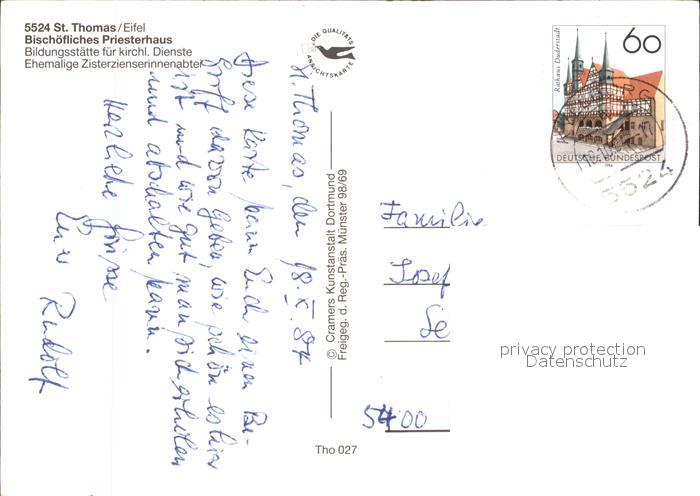 5524 St. Thomas/Eifel
Bischöfliches Priesterhaus
Bildungsstätte für kirchl. Dienste
Ehemalige Zisterzienserinnenabtei
DIE QUALITÄTS
ANSICHTSKARTE
St. Thomas, den 18.X.84
Diese Karte kann Euch einen Be-
griff davon geben, wie schön es hier
ist und wie gut man sich erholen
und abschalten kann.
Herzliche Grüsse
Euer Rudolf
© Cramers Kunstanstalt Dortmund
Freigeg. d. Reg.-Präs. Münster 98/69
Tho 027
60
Rathaus Duderstadt
DEUTSCHE BUNDESPOST
5524
Familie
Josef
Se
5400
privacy protection
Datenschutz